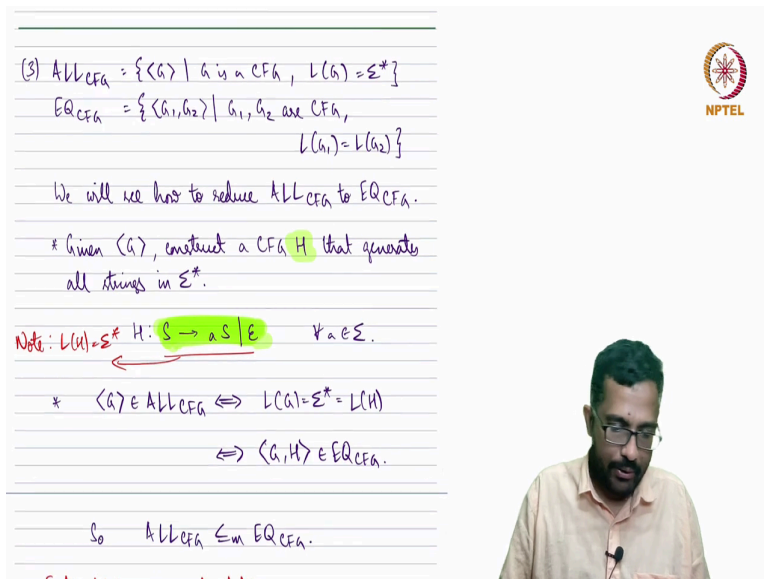 (3) ALL_CFG = {⟨G⟩ | G is a CFG, L(G) = Σ*}
EQ_CFG = {⟨G₁,G₂⟩ | G₁, G₂ are CFG,
L(G₁) = L(G₂)}
We will see how to reduce ALL_CFG to EQ_CFG.
* Given ⟨G⟩, construct a CFG H that generates
all strings in Σ*.
Note: L(H)=Σ* H: S → aS | ε ∀ a ∈ Σ.
* ⟨G⟩ ∈ ALL_CFG ⇔ L(G) = Σ* = L(H)
⇔ ⟨G,H⟩ ∈ EQ_CFG.
So ALL_CFG ≤m EQ_CFG.
NPTEL